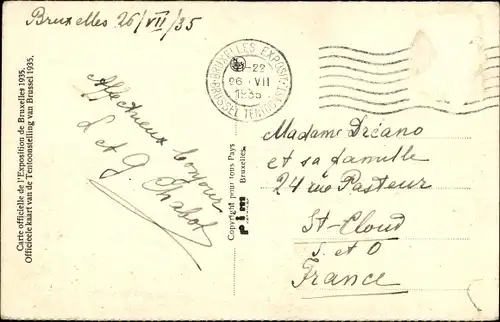 Bruxelles 26/VII/35
BRUXELLES EXPOSIT.
-22
26 VII
1935
BRUSSEL TENTOONST.
Affectueux bonjour
L et G. Chabot
Carte officielle de l'Exposition de Bruxelles 1935.
Officieele kaart van de Tentoonstelling van Brussel 1935.
Copyright pour tous Pays
pim Bruxelles
Madame Dréano
et sa famille
24 rue Pasteur
St-Cloud
S. et O
France